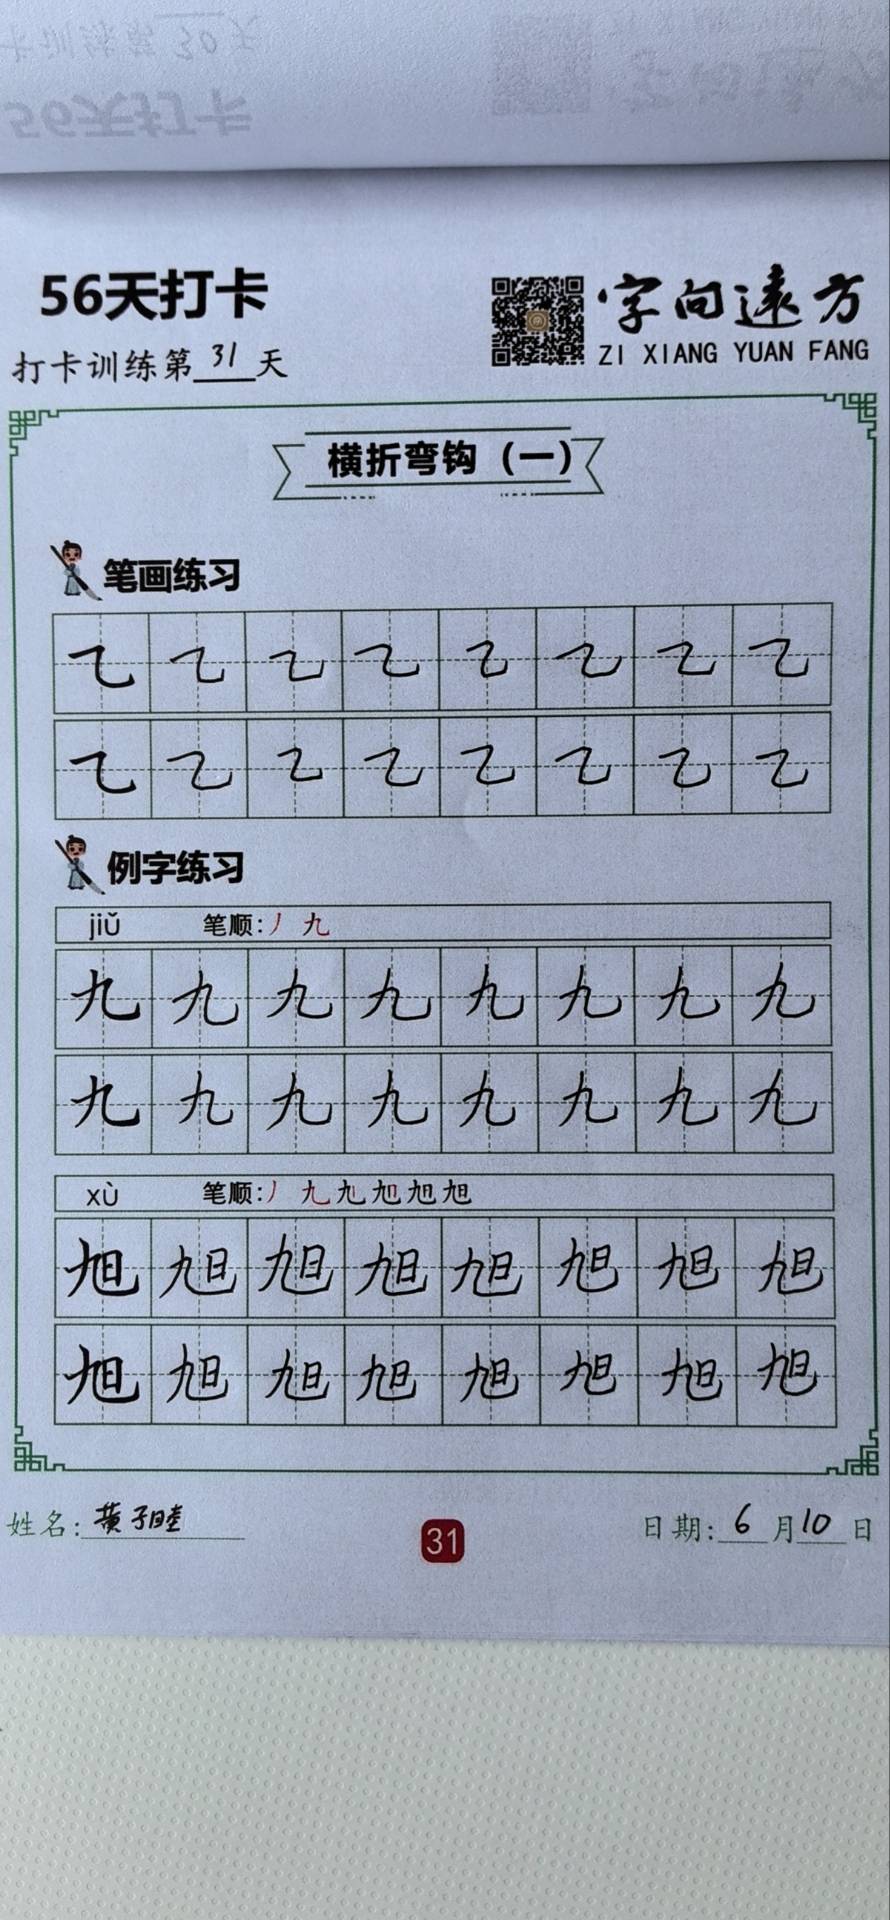 56天打卡
打卡训练第31天
字向遠方
ZI XIANG YUAN FANG
横折弯钩（一）
笔画练习
㇈ ㇈ ㇈ ㇈ ㇈ ㇈ ㇈ ㇈
㇈ ㇈ ㇈ ㇈ ㇈ ㇈ ㇈ ㇈
例字练习
jiǔ 笔顺:丿 九
九 九 九 九 九 九 九 九
九 九 九 九 九 九 九 九
xù 笔顺:丿 九 旭 旭 旭 旭
旭 旭 旭 旭 旭 旭 旭 旭
旭 旭 旭 旭 旭 旭 旭 旭
姓名:黄子睦
31
日期:6月10日